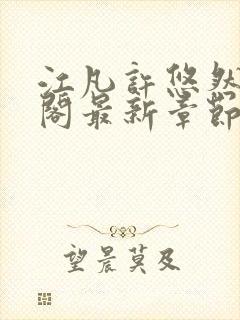 江凡許悠然
閣最新章節
望晨莫及